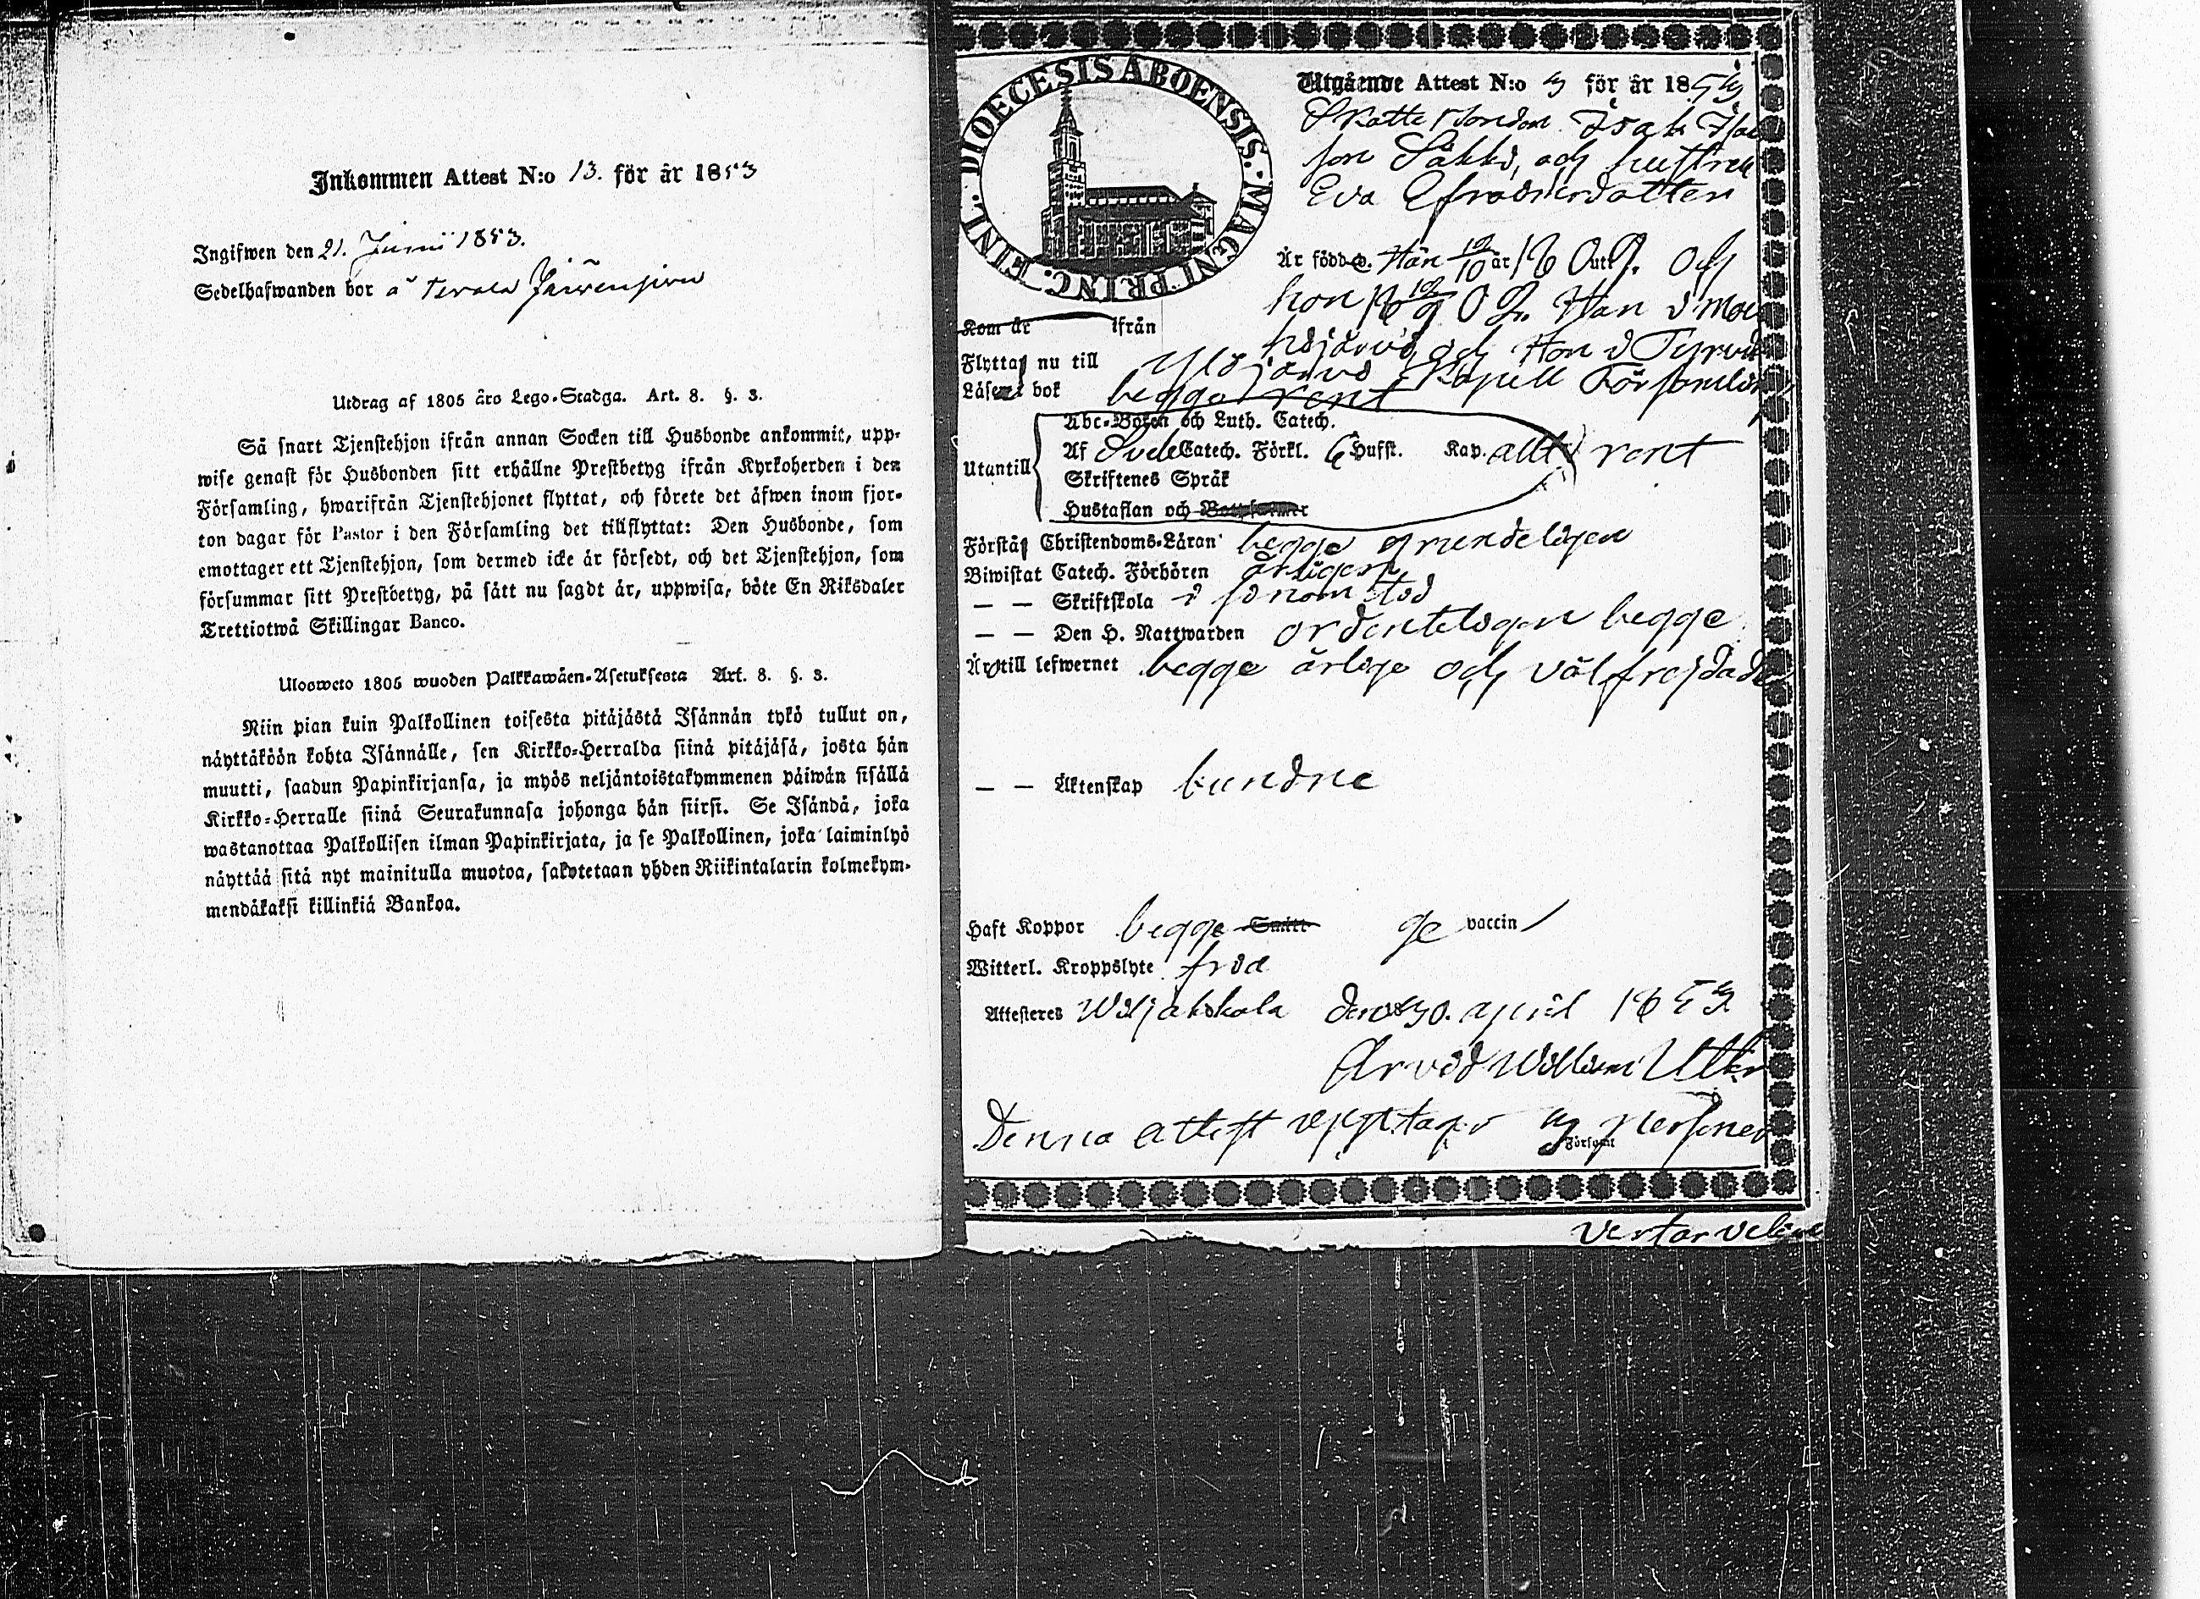 Inkommen Attest N:o 13. för år 1853
Ingifwen den 21. Junii 1853.
Sedelhafwanden bor å
Utdrag af 1805 års Lego-Stadga. Art. 8. §. 3.
Så snart Tjenstehjon ifrån annan Socken till Husbonde ankommit, upp-
wise genast för Husbonden sitt erhållne Prestbetyg ifrån Kyrkoherden i den
Församling, hwarifrån Tjenstehjonet flyttat, och förete det äfwen inom fjor-
ton dagar för Pastor i den Församling det tillflyttat: Den Husbonde, som
emottager ett Tjenstehjon, som dermed icke är försedt, och det Tjenstehjon, som
försummar sitt Prestbetyg, på sätt nu sagdt är, uppwisa, böte En Riksdaler
Trettiotwå Skillingar Banco.
Ulosweto 1805 wuoden Palkkawäen-Asetuksesta Art. 8. §. 3.
Niin pian kuin Palkollinen toisesta pitäjästä Isännän tykö tullut on,
näyttäköön kohta Isännälle, sen Kirkko-Herralda siinä pitäjäsä, josta hän
muutti, saadun Papinkirjansa, ja myös neljäntoistakymmenen päiwän sisällä
Kirkko-Herralle siinä Seurakunnasa johonga hän siirsi. Se Isändä, joka
wastanottaa Palkollisen ilman Papinkirjata, ja se Palkollinen, joka laiminlyö
näyttää sitä nyt mainitulla muotoa, sakotetaan yhden Riikintalarin kolmekym-
mendäkaksi killinkiä Bankoa.
DIOECESIS ABOENSIS. MAGNI PRINC. FINL.
Utgående Attest N:o 3 för år 1853
Skattebonden Isak
son Säkki, och hustrun
Eva Efraimsdotter
Är född Han 12/10 år 1809. och
hon 18 12/9 09. Han i
och Hon i
Kom år ifrån
Flyttas nu till Ylöjärvi Kapell
Läser i bok begge rent
Abc-Boken och Luth. Catech.
Utantill Af Catech. Förkl. 6 Hufst. Kap. allt rent
Skriftenes Språk
Hustaflan och
Förstås Christendoms-Läran begge grundeligen
Biwistat Catech. Förhören årligen
— — Skriftskola i sinom tid
— — Den H. Nattwarden ordenteligen begge
Är till lefwernet begge ärlige och välfrejdade
— — Äktenskap bundne
Haft Koppor begge ge vaccin
Witterl. Kroppslyte fria
Attesteras Wiljakkala den 30. april 1853
Arvid Willem
Denna attest upptager 3 personer
Församl